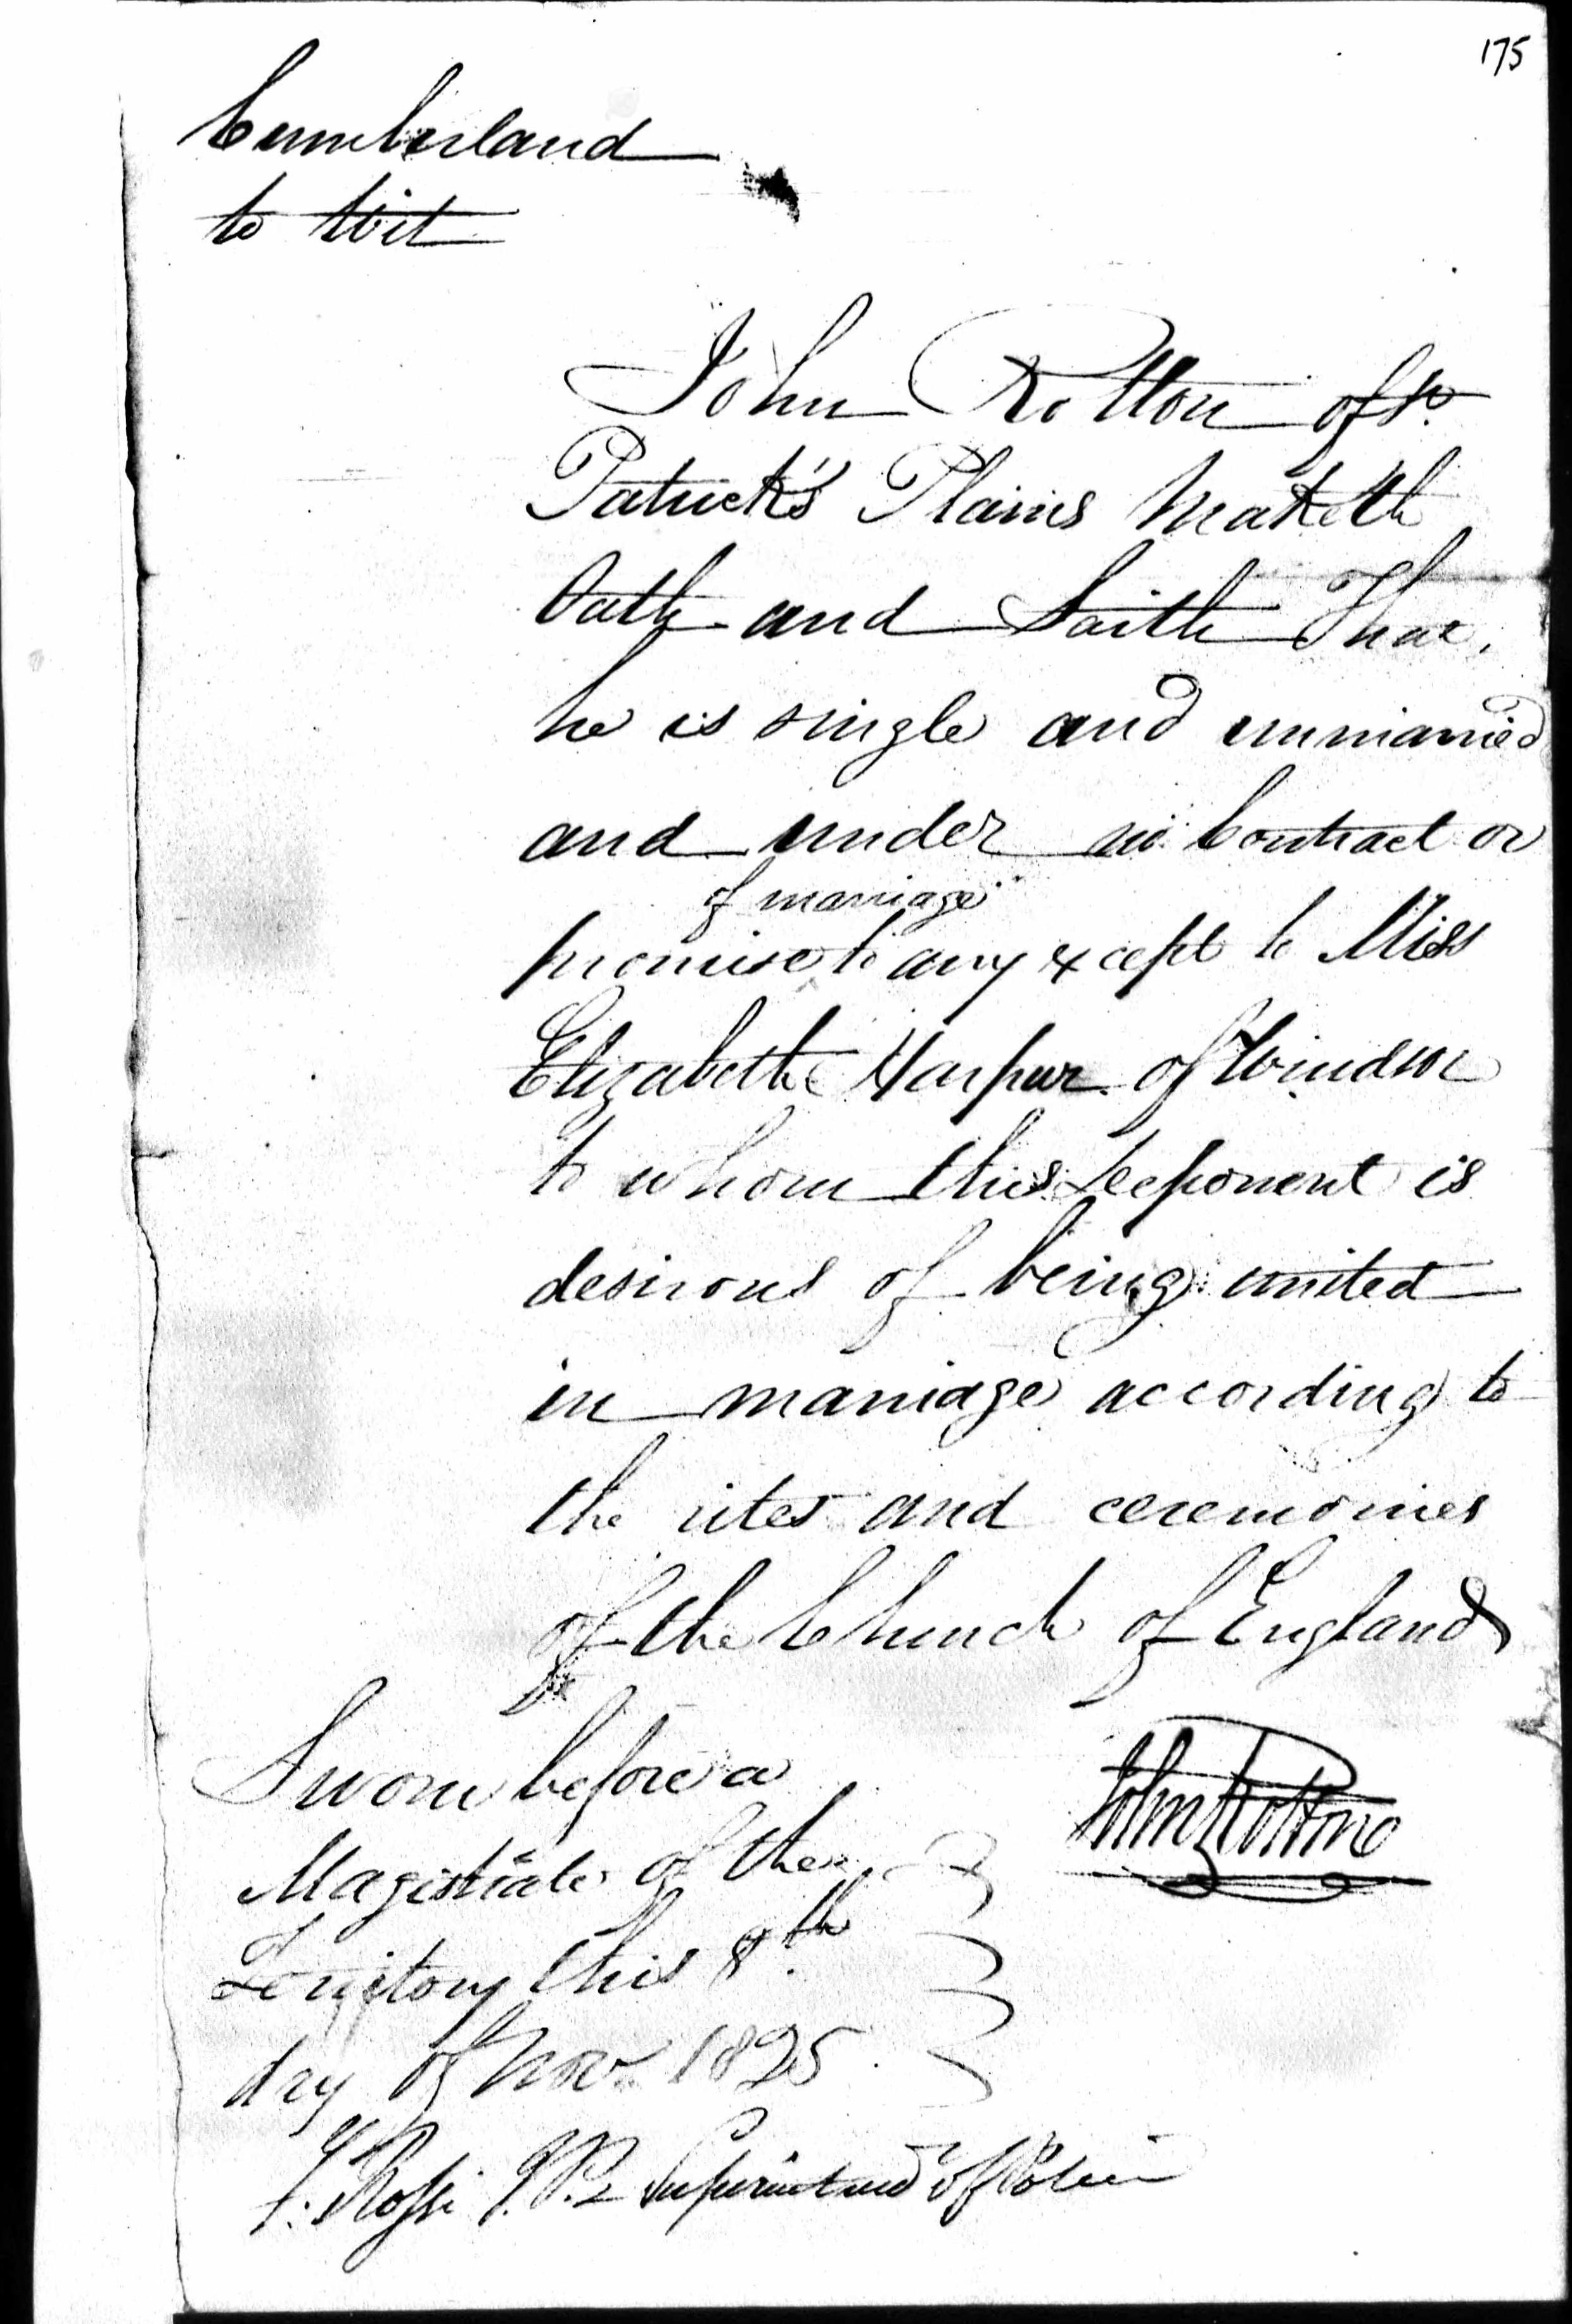 175
Cumberland
to Wit
John Rotton of St.
Patrick's Plains Maketh
Oath and Saith That
he is single and unmarried
and under no Contract or
of marriage
promise to any except to Miss
Elizabeth Harpur of Windsor
to whom this deponent is
desirous of being united
in marriage according to
the rites and ceremonies
of the Church of England
Sworn before a
Magistrate of the
Territory this 8th
day of Nov 1825
John Rotton
F. Rossi J.P. Superintend of Police